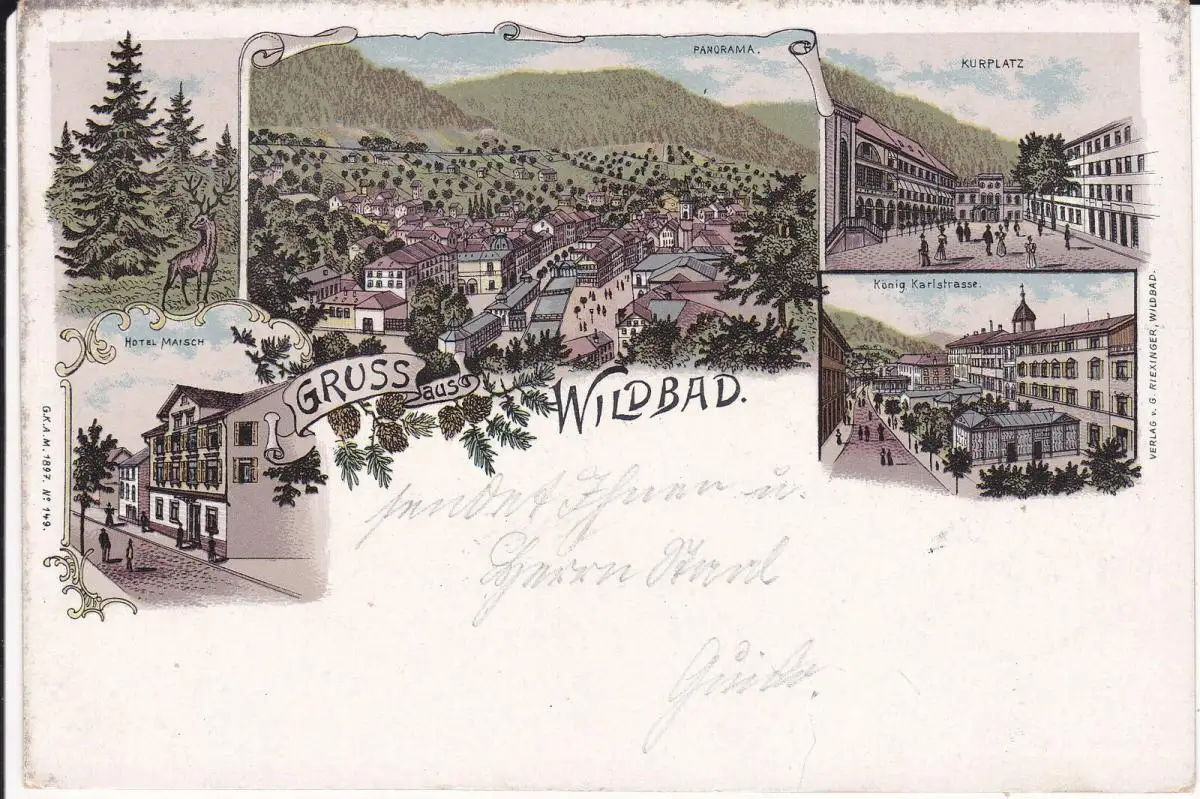 PANORAMA.
KURPLATZ
König Karlstrasse.
HOTEL MAISCH
GRUSS aus WILDBAD.
sendet Ihnen u.
Herrn
G.K.A.M. 1897. Nº 149.
VERLAG v. G. RIEXINGER, WILDBAD.